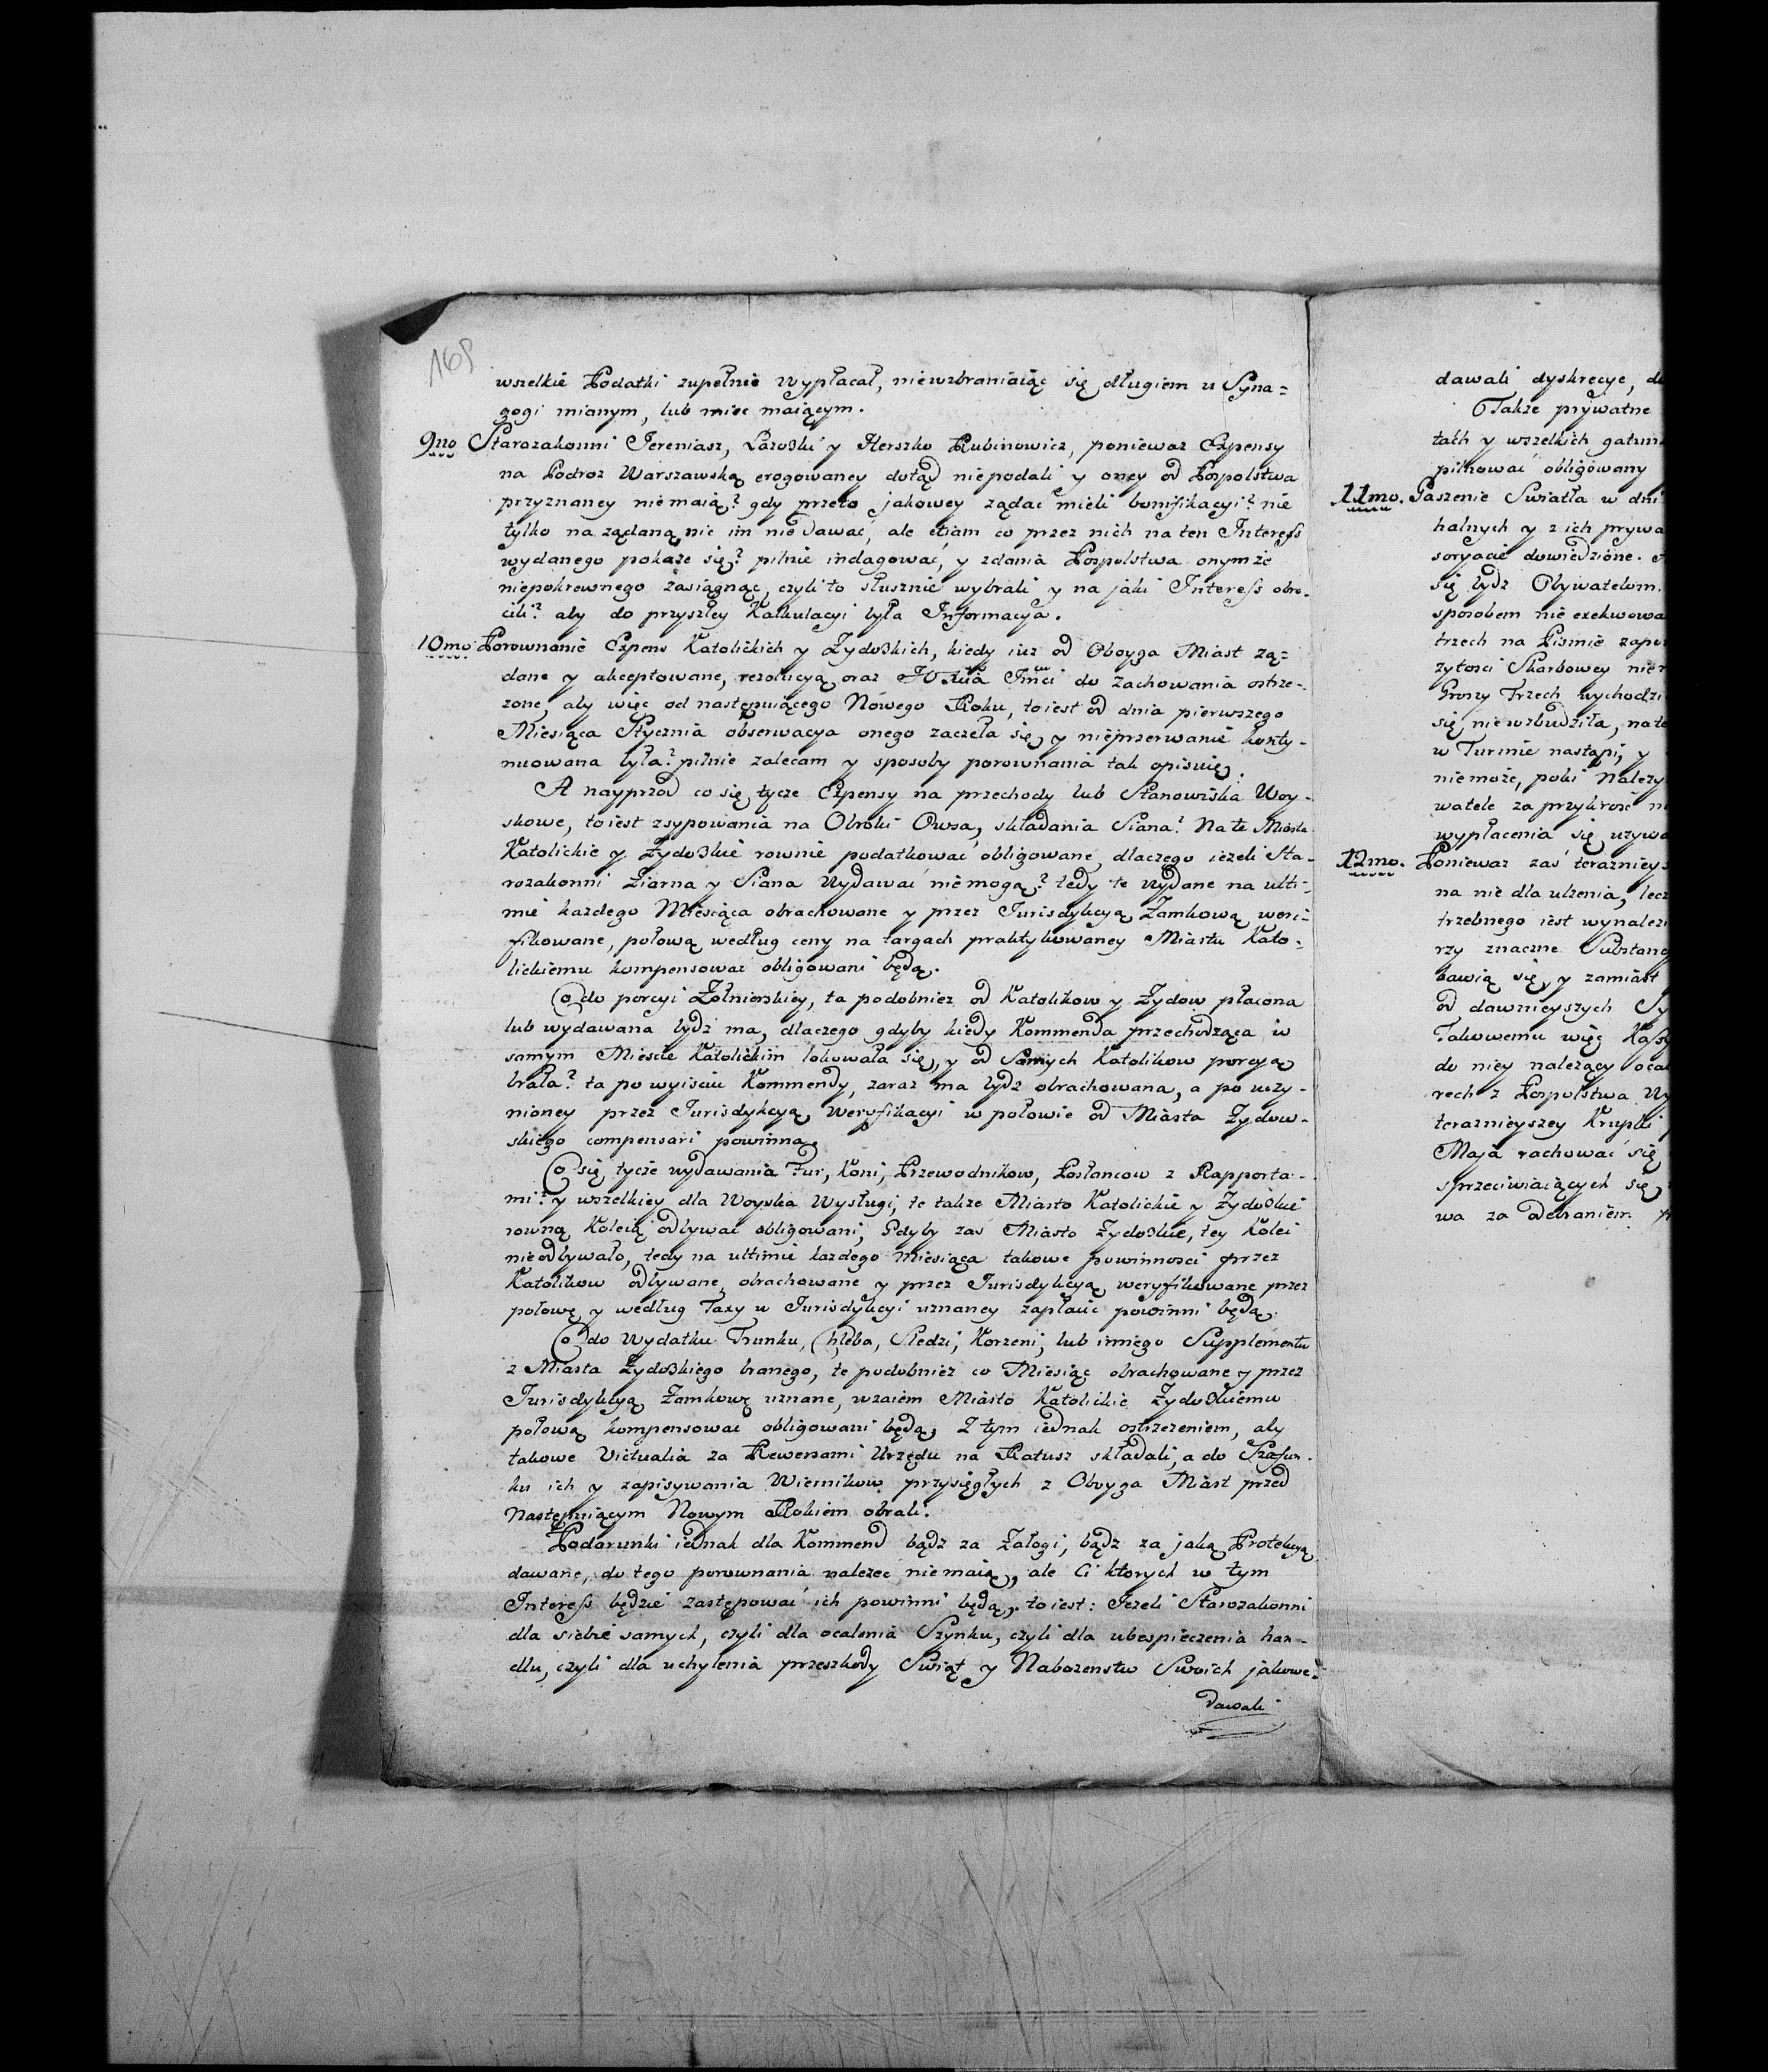 168
wszelkie Podatki zupełnie wypłacał, niewzbraniaiąc się długiem u Syna=
gogi mianym, lub miec maiącym.
9no Starozakonni Jereniasz, Lazoski y Herszko Rubinowicz, poniewaz Expensy
na Podroz Warszawską erogowaney dotąd niepodali y oney od Pospolstwa
przyznaney niemaią? gdy przeto jakowey ządac mieli bonifikacyi? nie
tylko na ządaną nic im nie dawac, ale etiam co przez nich na ten Interess
wydanego pokaze się? pilnie indagowac, y zdania Pospolstwa onymze
niepokrewnego zasiągnąc, czyli to słusznie wybrali y na jaki Interess obro-
cili? aby do przyszłey Kalkulacyi była Informacya.
10mo Porownanie Expens Katolickich y Zydoskich, kiedy iuz od Oboyga Miast zą=
dane y akceptowane, rezolucyą oraz Imci do zachowania ostrze-
zone, aby więc od następuiącego Nowego Roku, to iest od dnia pierwszego
Miesiąca Stycznia obserwacya onego zaczeła się y nieprzerwanie konty-
nuowana była? pilnie zalecam y sposoby porownania tak opisuię.
A nayprzod co się tycze Expensy na przechody lub Stanowiska Woy-
skowe, to iest zsypowania na Obroki Owsa, składania Siana? Na te Miasta
Katolickie y Zydoskie rownie podatkowac obligowane, dlaczego iezeli Sta-
rozakonni Ziarna y Siana wydawac niemogą? tedy te wydane na ulti-
mie kazdego Miesiąca obrachowane y przez Jurisdykcyą Zamkową weri-
fikowane, połową według ceny na targach praktykowaney Miastu Kato-
lickiemu kompensowac obligowani będą.
Co do porcyi Zołnierskiey, ta podobniez od Katolikow y Zydow płacona
lub wydawana bydz ma, dlaczego gdyby kiedy Kommenda przechodząca w
samym Miescie Katolickim lokowała się, y od samych Katolikow porcyą
brała? ta po wyisciu Kommendy, zaraz ma bydz obrachowana, a po uczy-
nioney przez Jurisdykcyą weryfikacyi w połowie od Miasta Zydow-
skiego compensari powinna.
Co się tycze wydawania Fur, Koni, Przewodnikow, Posłancow z Rapporta-
mi? y wszelkiey dla Woyska Wysługi, te takze Miasto Katolickie y Zydoskie
rowną Koleią odbywac obligowani; Gdyby zas Miasto Zydoskie, tey Kolei
nieodbywało, tedy na ultimie kazdego miesiąca takowe powinnosci przez
Katolikow odbywane, obrachowane y przez Jurisdykcyą weryfikowane przez
połowę y według Taxy u Jurisdykcyi uznaney zapłacic powinni będą.
Co do Wydatku Trunku, Chleba, Sledzi, Korzeni, lub innego Supplementu
z Miasta Zydoskiego branego, te podobniez co Miesiąc obrachowane y przez
Jurisdykcyą Zamkową uznane, wzaiem Miasto Katolickie Zydoskiemu
połową kompensowac obligowani będą, Z tym iednak ostrzezeniem, aby
takowe Victualia za Rewersami Urzędu na Ratusz składali, a do Szafun-
ku ich y zapisywania Wiernikow przysięgłych z Oboyga Miast przed
Następuiącym Nowym Rokiem obrali.
Podarunki iednak dla Kommend bądz za Załogi, bądz za jaką Protekcyą
dawane, do tego porownania nalezec niemaią, ale Ci ktorych w tym
Interess będzie zastępowac ich powinni będą, to iest: Jezeli Starozakonni
dla siebie samych, czyli dla ocalenia Szynku, czyli dla ubespieczenia han-
dlu, czyli dla uchylenia przeszkody Swiąt y Nabozenstw Swoich jakowe=
dawali
dawali dyskrecye,
Takze prywatne
tach y wszelkich
pilnowac obligowany
11mo. Gaszenie Swiatła w dni
halnych y z ich
dowiedzione.
się bydz Obywatelom.
sposobem nie
trzech na Pismie
Skarbowey
Groszy Trzech wychodzi
się niewzbudziła,
w Turmie nastąpi, y
niemoze, poki
watele za przykrosc
wypłacenia się
12mo. Poniewaz zas
na nie dla ulzenia,
trzebnego iest
rzy znaczne
bawią się, y zamiast
od dawnieyszych
Takowemu więc
do niey nalezący
rech z Pospolstwa
teraznieyszey Krupki
Maja rachowac się
sprzeciwiaiących się,
wa za odebraniem